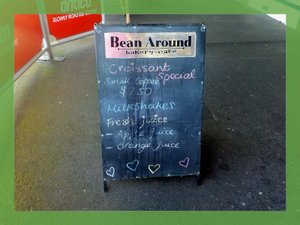 SLOWLY ROASTED
Bean Around
bakery-cafe
Croissant
Small Coffee Special
$7.50
Milkshakes
Fresh juice
- Apple juice
- orange juice